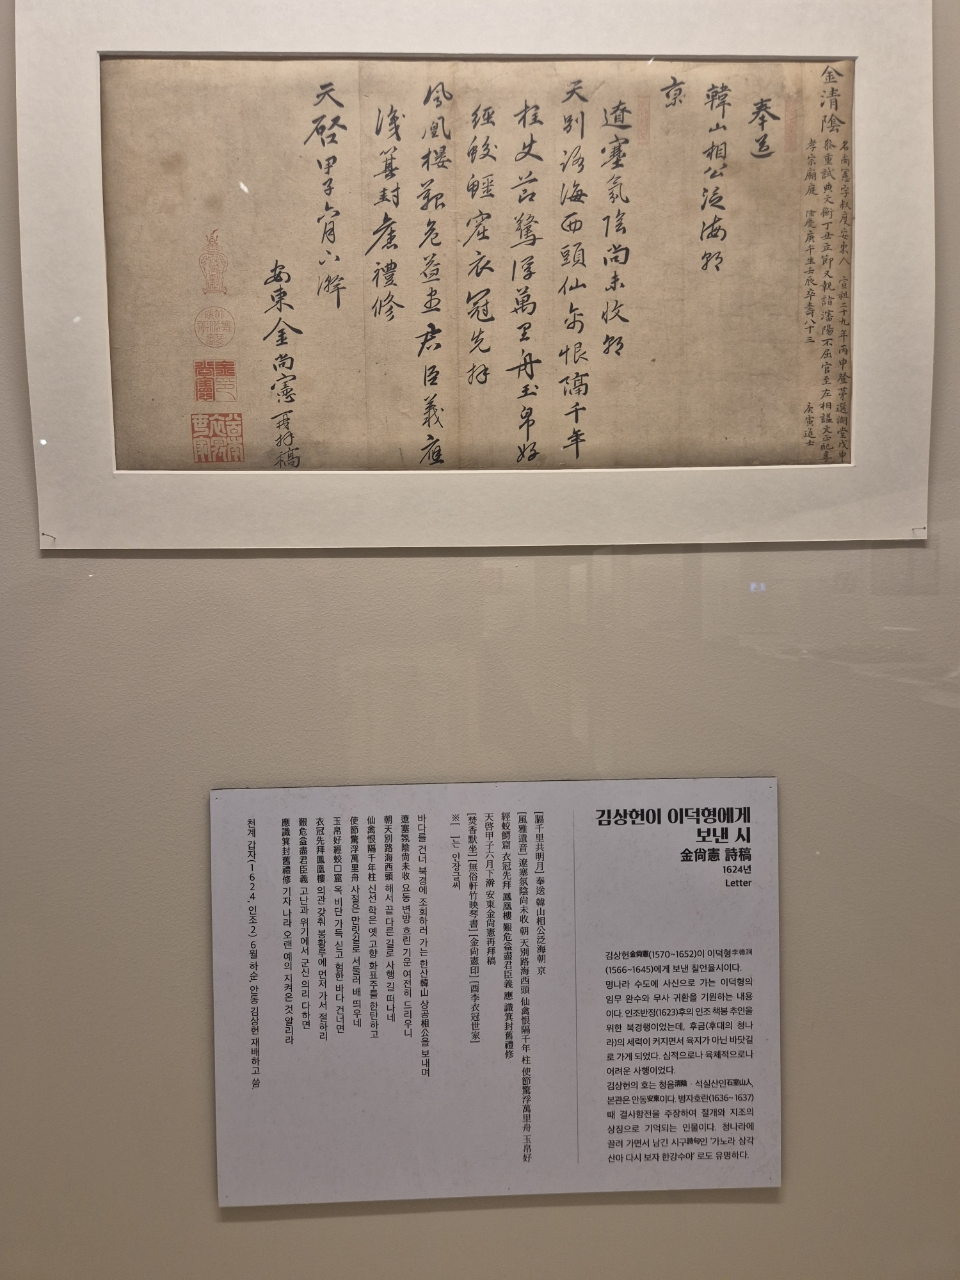 金清陰
名尚憲字叔度安東人 宣祖二十九年丙申登第選湖堂戊申
重試典文衡丁丑立節又執詣瀋陽不屈官至左相謚文正配享
孝宗廟庭 隆慶庚午生壬辰卒壽八十三 庚寅進士
奉送
韓山相公泛海朝
京
遼塞氛陰尚未收朝
天別路海西頭仙禽恨隔千年
柱使節驚浮萬里舟玉帛好
經蛟鰐窟衣冠先拜
鳳凰樓艱危益盡君臣義應
識箕封舊禮修
天啓甲子六月下澣
安東金尚憲再拜稿
김상헌이 이덕형에게
보낸 시
金尙憲 詩稿
1624년
Letter
김상헌金尙憲(1570~1652)이 이덕형李德泂
(1566~1645)에게 보낸 칠언율시이다.
명나라 수도에 사신으로 가는 이덕형의
임무 완수와 무사 귀환을 기원하는 내용
이다. 인조반정(1623)후의 인조 책봉 추인을
위한 북경행이었는데, 후금(후대의 청나
라)의 세력이 커지면서 육지가 아닌 바닷길
로 가게 되었다. 심적으로나 육체적으로나
어려운 사행이었다.
김상헌의 호는 청음淸陰·석실산인石室山人,
본관은 안동安東이다. 병자호란(1636~1637)
때 결사항전을 주장하여 절개와 지조의
상징으로 기억되는 인물이다. 청나라에
끌려 가면서 남긴 시구詩句인 '가노라 삼각
산아 다시 보자 한강수야' 로도 유명하다.
[隔千里共明月] 奉送 韓山相公泛海朝 京
[風雅遺音] 遼塞氛陰尙未收 朝 天別路海西頭 仙禽恨隔千年 柱 使節驚浮萬里舟 玉帛好
經蛟鰐窟 衣冠先拜 鳳凰樓 艱危益盡君臣義 應 識箕封舊禮修
天啓甲子六月下澣 安東金尙憲再拜稿
[焚香默坐] [無俗軒竹映琴書] [金尙憲印] [酉李衣冠世家]
※ [ ]는 인장글씨
바다를 건너 북경에 조회하러 가는 한산韓山 상공相公을 보내며
遼塞氛陰尙未收 요동 변방 흐린 기운 여전히 드리우니
朝天別路海西頭 해서 끝 다른 길로 사행 길 떠나네
仙禽恨隔千年柱 신선 학은 옛 고향 화표주를 한탄하고
使節驚浮萬里舟 사절은 만릿길로 서둘러 배 띄우네
玉帛好經蛟口窟 옥 비단 가득 싣고 험한 바다 건너면
衣冠先拜鳳凰樓 의관 갖춰 봉황루에 먼저 가서 절하리
艱危益盡君臣義 고난과 위기에서 군신 의리 다하면
應識箕封舊禮修 기자 나라 오랜 예의 지켜온 것 알리라
천계 갑자(1624, 인조2) 6월 하순, 안동 김상헌 재배하고 씀